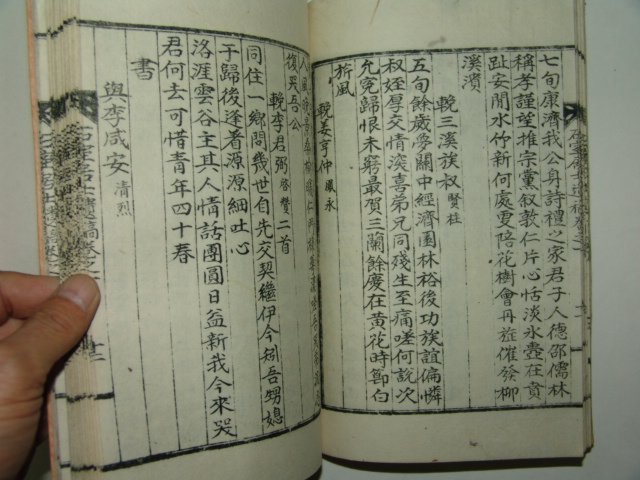 七旬康濟我公身詩禮之家君子人德邵儒林
稱孝謹望推宗黨叙敦仁片心恬淡氷壺在賁
趾安閒水竹新何處更陪花樹會冉益催發柳
溪濱
輓三溪族叔 賢柱
五旬餘歲夢關中經濟園林裕後功族誼偏憐
叔姪厚交情深喜弟兄同殘生至痛嗟何說次
允寃歸恨未窮最賀三蘭餘慶在黃花時節白
旂風
輓姜亨仲 鳳永
人風
復哭吾公
輓李君弼 啓贊 二首
同住一鄕問幾世自先交契繼伊今捌吾甥媳
于歸後逢着源源細吐心
洛涯雲谷主其人情話團圓日益新我今來哭
君何去可惜靑年四十春
書
與李咸安 清烈